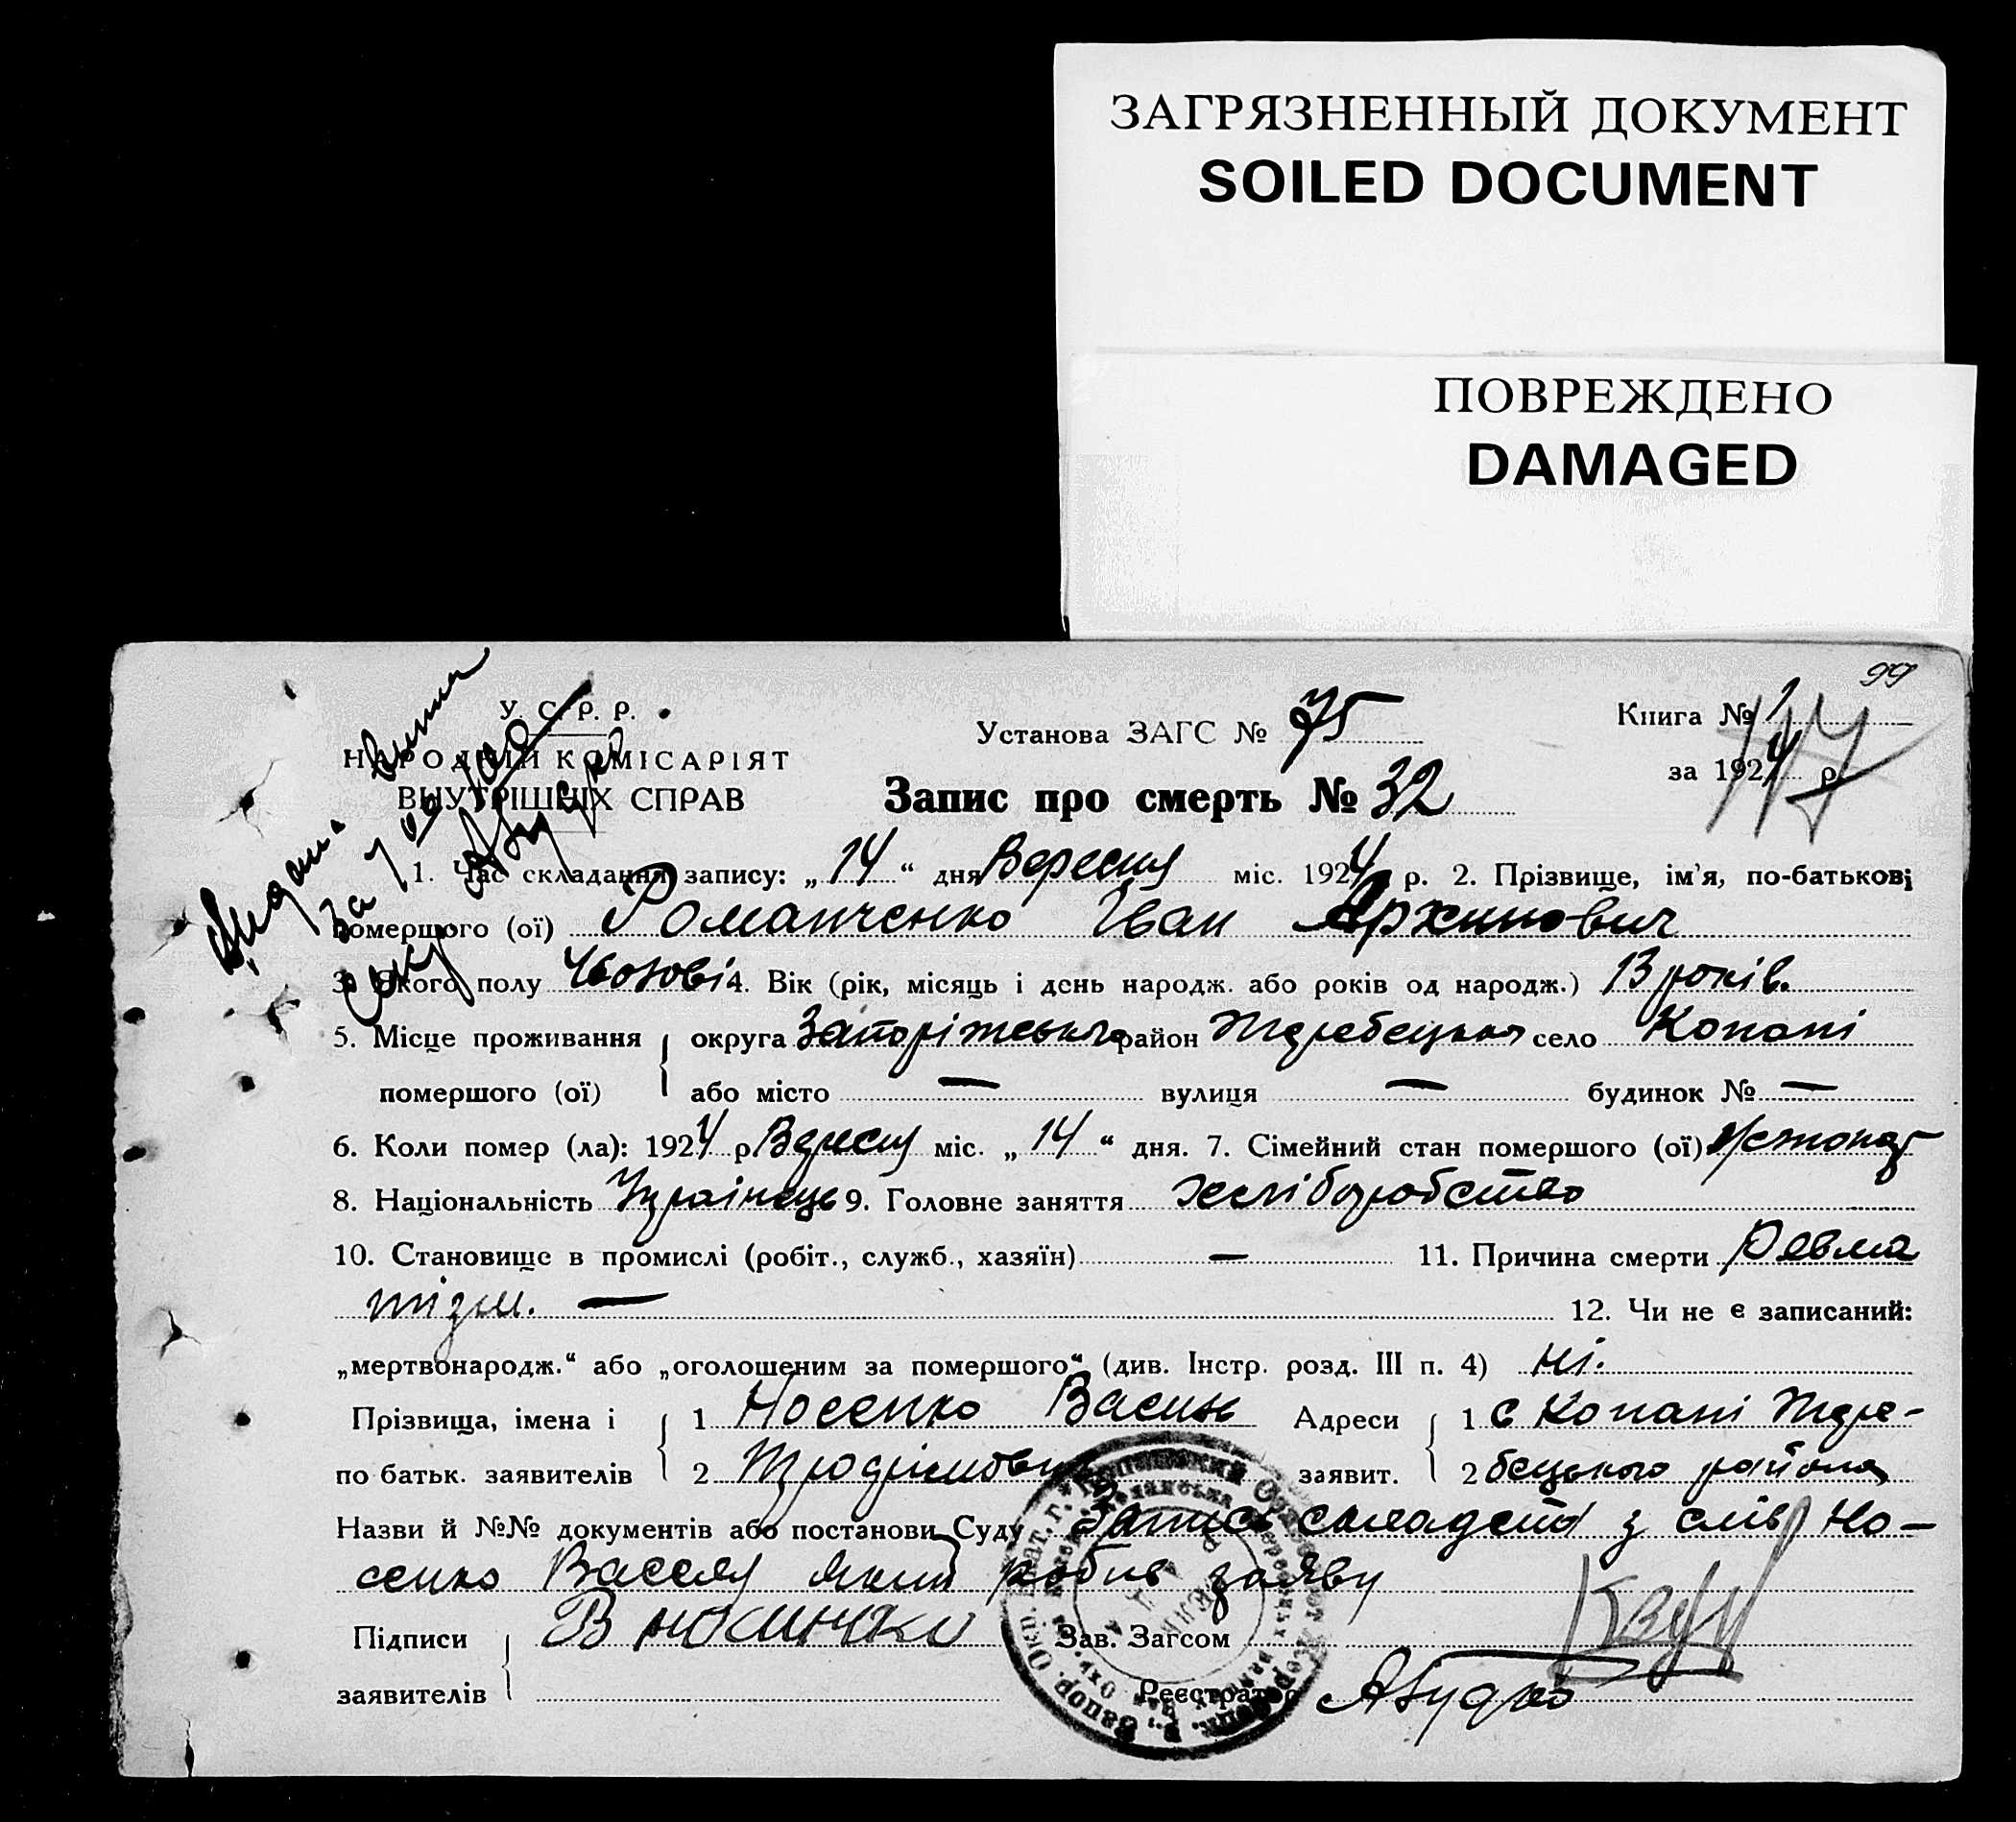 ЗАГРЯЗНЕННЫЙ ДОКУМЕНТ
SOILED DOCUMENT
ПОВРЕЖДЕНО
DAMAGED
99
У. С. Р. Р.
НАРОДНІЙ КОМІСАРІЯТ
ВНУТРІШНІХ СПРАВ
Установа ЗАГС № 75
Книга № 1
за 1924 р.
117
Запис про смерть № 32
1. Час складання запису: „14“ дня Вересня міс. 1924 р. 2. Прізвище, ім'я, по-батькові
помершого (ої) Романченко Іван Архипович
3. Якого полу Чолові 4. Вік (рік, місяць і день народж. або років од народж.) 13 років.
5. Місце проживання округа Запоріжського район Жеребецького село Копані
помершого (ої) або місто — вулиця — будинок № —
6. Коли помер (ла): 1924 р. Вересня міс. „14“ дня. 7. Сімейний стан помершого (ої)
8. Національність Українець 9. Головне заняття хліборобство
10. Становище в промислі (робіт., служб., хазяїн) — 11. Причина смерти Ревма
тізм. — 12. Чи не є записаний:
„мертвонародж.“ або „оголошеним за помершого“ (див. Інстр. розд. III п. 4) Ні.
Прізвища, імена і 1 Носенко Василь Адреси 1 с Копані Жере-
по батьк. заявителів 2 Трофімович заявит. 2 бецького района
Назви й №№ документів або постанови Суду Запись складена з слів Но-
сенко Василя який робив заяву
Підписи В Носинко Зав. Загсом
заявителів Реєстратор